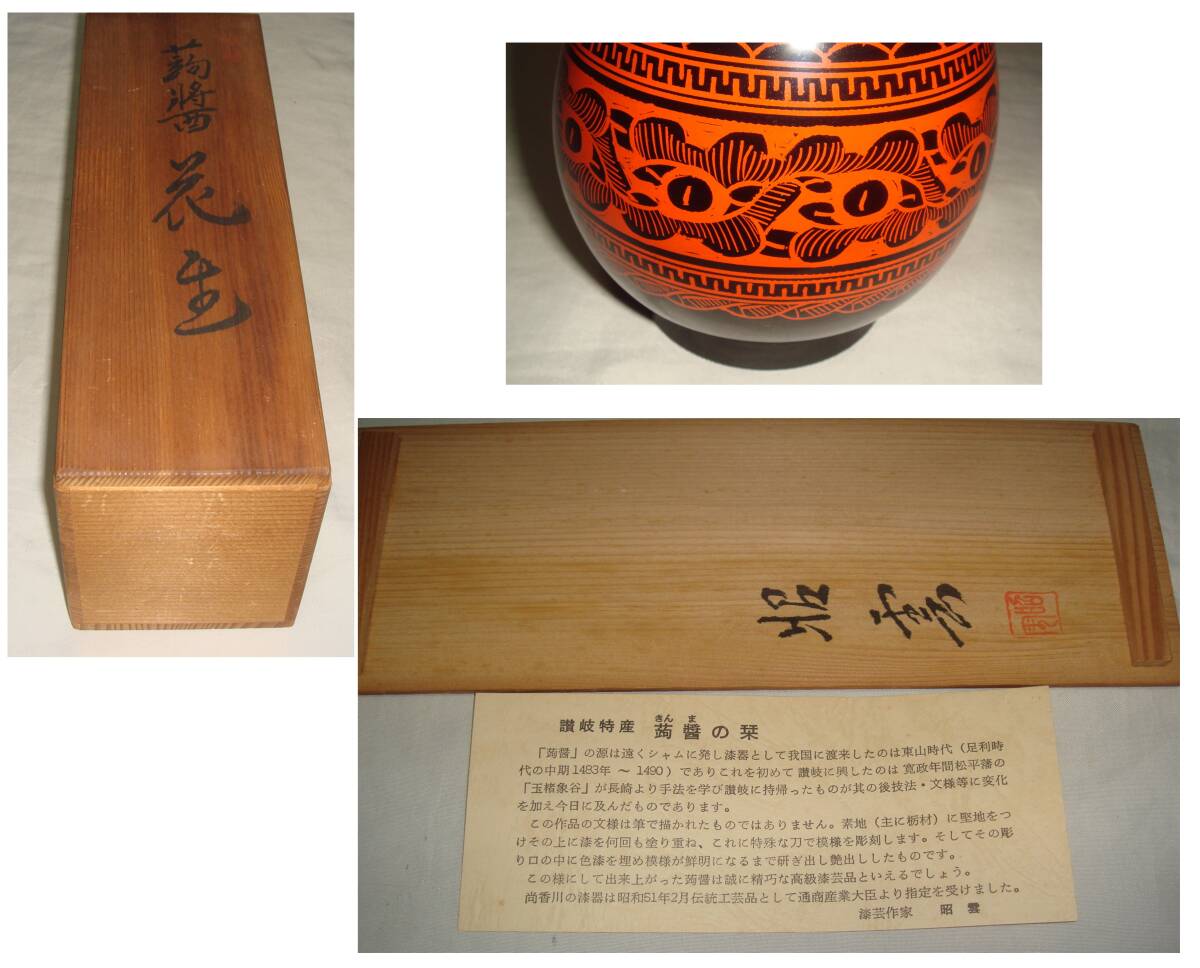 蒟醬 花生
昭雲
讃岐特産 蒟醬の栞
きんま
「蒟醬」の源は遠くシャムに発し漆器として我国に渡来したのは東山時代（足利時
代の中期1483年 ～ 1490）でありこれを初めて 讃岐に興したのは 寛政年間松平藩の
「玉楮象谷」が長崎より手法を学び讃岐に持帰ったものが其の後技法・文様等に変化
を加え今日に及んだものであります。
この作品の文様は筆で描かれたものではありません。素地（主に栃材）に堅地をつ
けその上に漆を何回も塗り重ね、これに特殊な刀で模様を彫刻します。そしてその彫
り口の中に色漆を埋め模様が鮮明になるまで研ぎ出し艶出ししたものです。
この様にして出来上がった蒟醬は誠に精巧な高級漆芸品といえるでしょう。
尚香川の漆器は昭和51年2月伝統工芸品として通商産業大臣より指定を受けました。
漆芸作家 昭雲